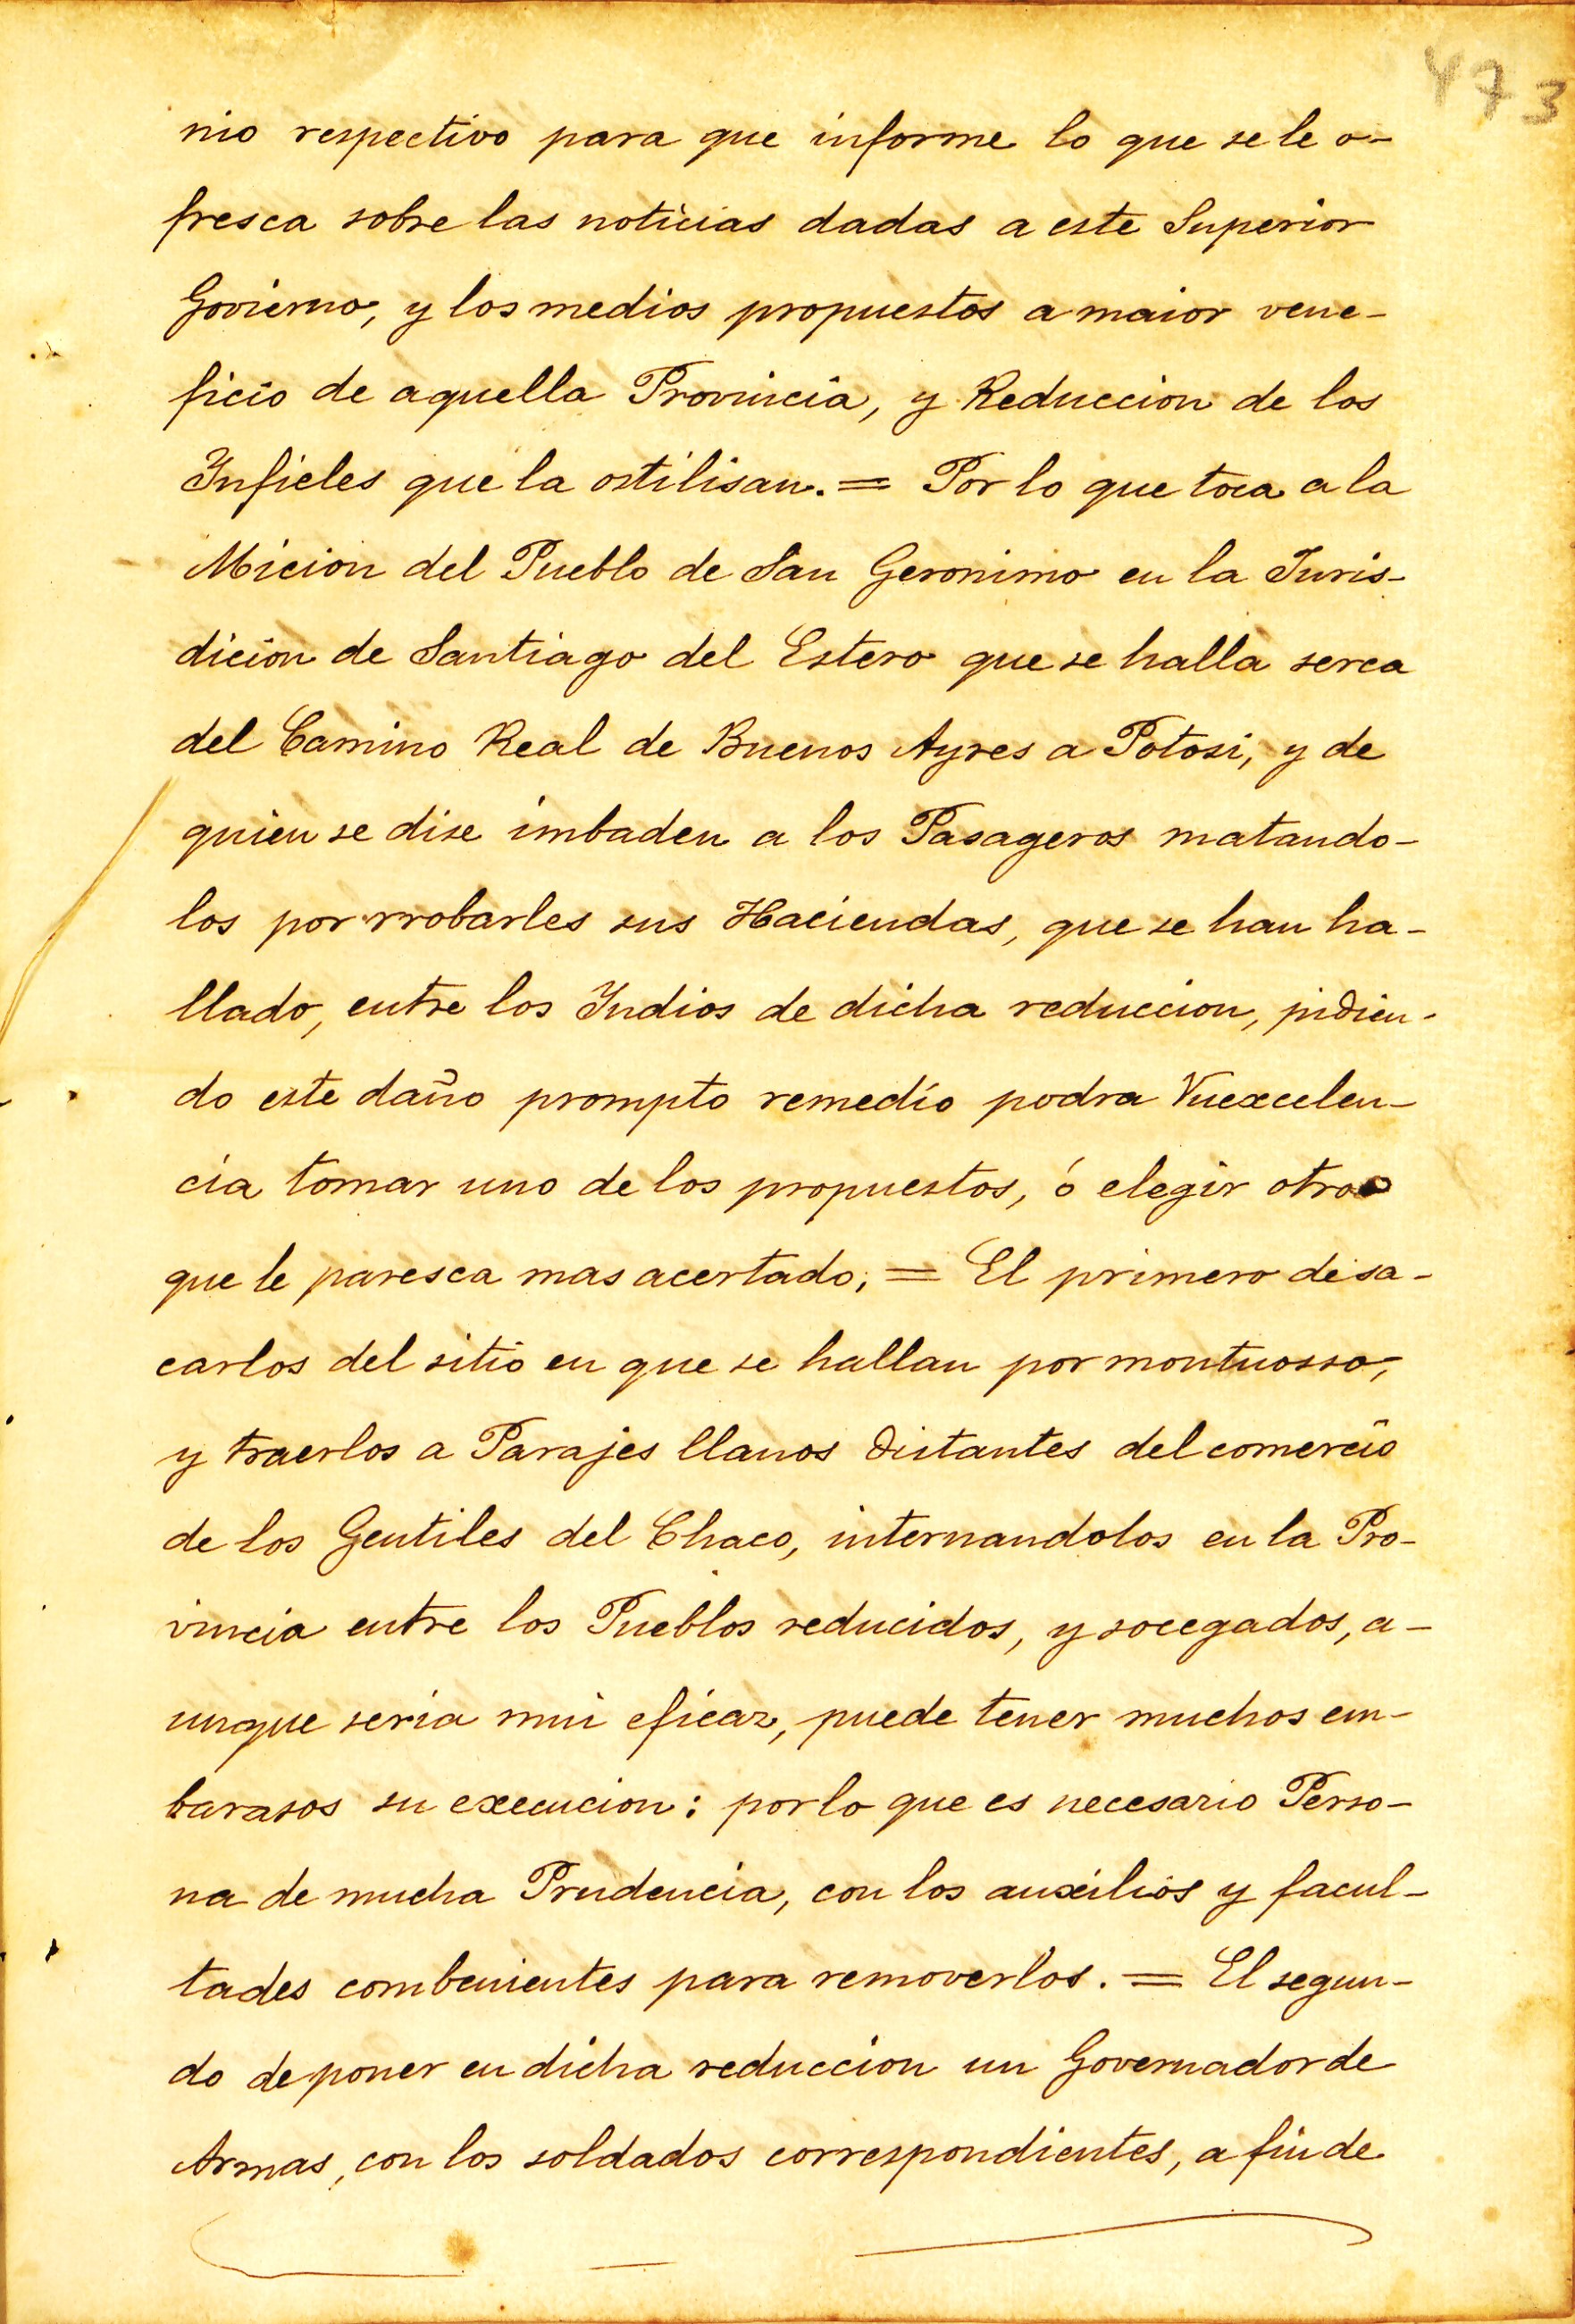 473
nio respectivo para que informe lo que se le o-
fresca sobre las noticias dadas a este Superior
Govierno, y los medios propuestos a maior vene-
ficio de aquella Provincia, y Reduccion de los
Infieles que la ostilisan. = Por lo que toca a la
Micion del Pueblo de San Geronimo en la Juris-
dicion de Santiago del Estero que se halla serca
del Camino Real de Buenos Ayres a Potosi, y de
quien se dise imbaden a los Pasageros matando-
los por rrobarles sus Haciendas, que se han ha-
llado, entre los Indios de dicha reduccion, pidien-
do este daño prompto remedio podra Vuexcelen-
cia tomar uno de los propuestos, ó elegir otro
que le paresca mas acertado; = El primero de sa-
carlos del sitio en que se hallan por montuosso,
y traerlos a Parajes llanos distantes del comercio
de los Gentiles del Chaco, internandolos en la Pro-
vincia entre los Pueblos reducidos, y socegados, a-
unque seria mui eficaz, puede tener muchos em-
barasos su execucion: por lo que es necesario Perso-
na de mucha Prudencia, con los auxilios y facul-
tades combenientes para removerlos. = El segun-
do de poner en dicha reduccion un Governador de
Armas, con los soldados correspondientes, a fin de